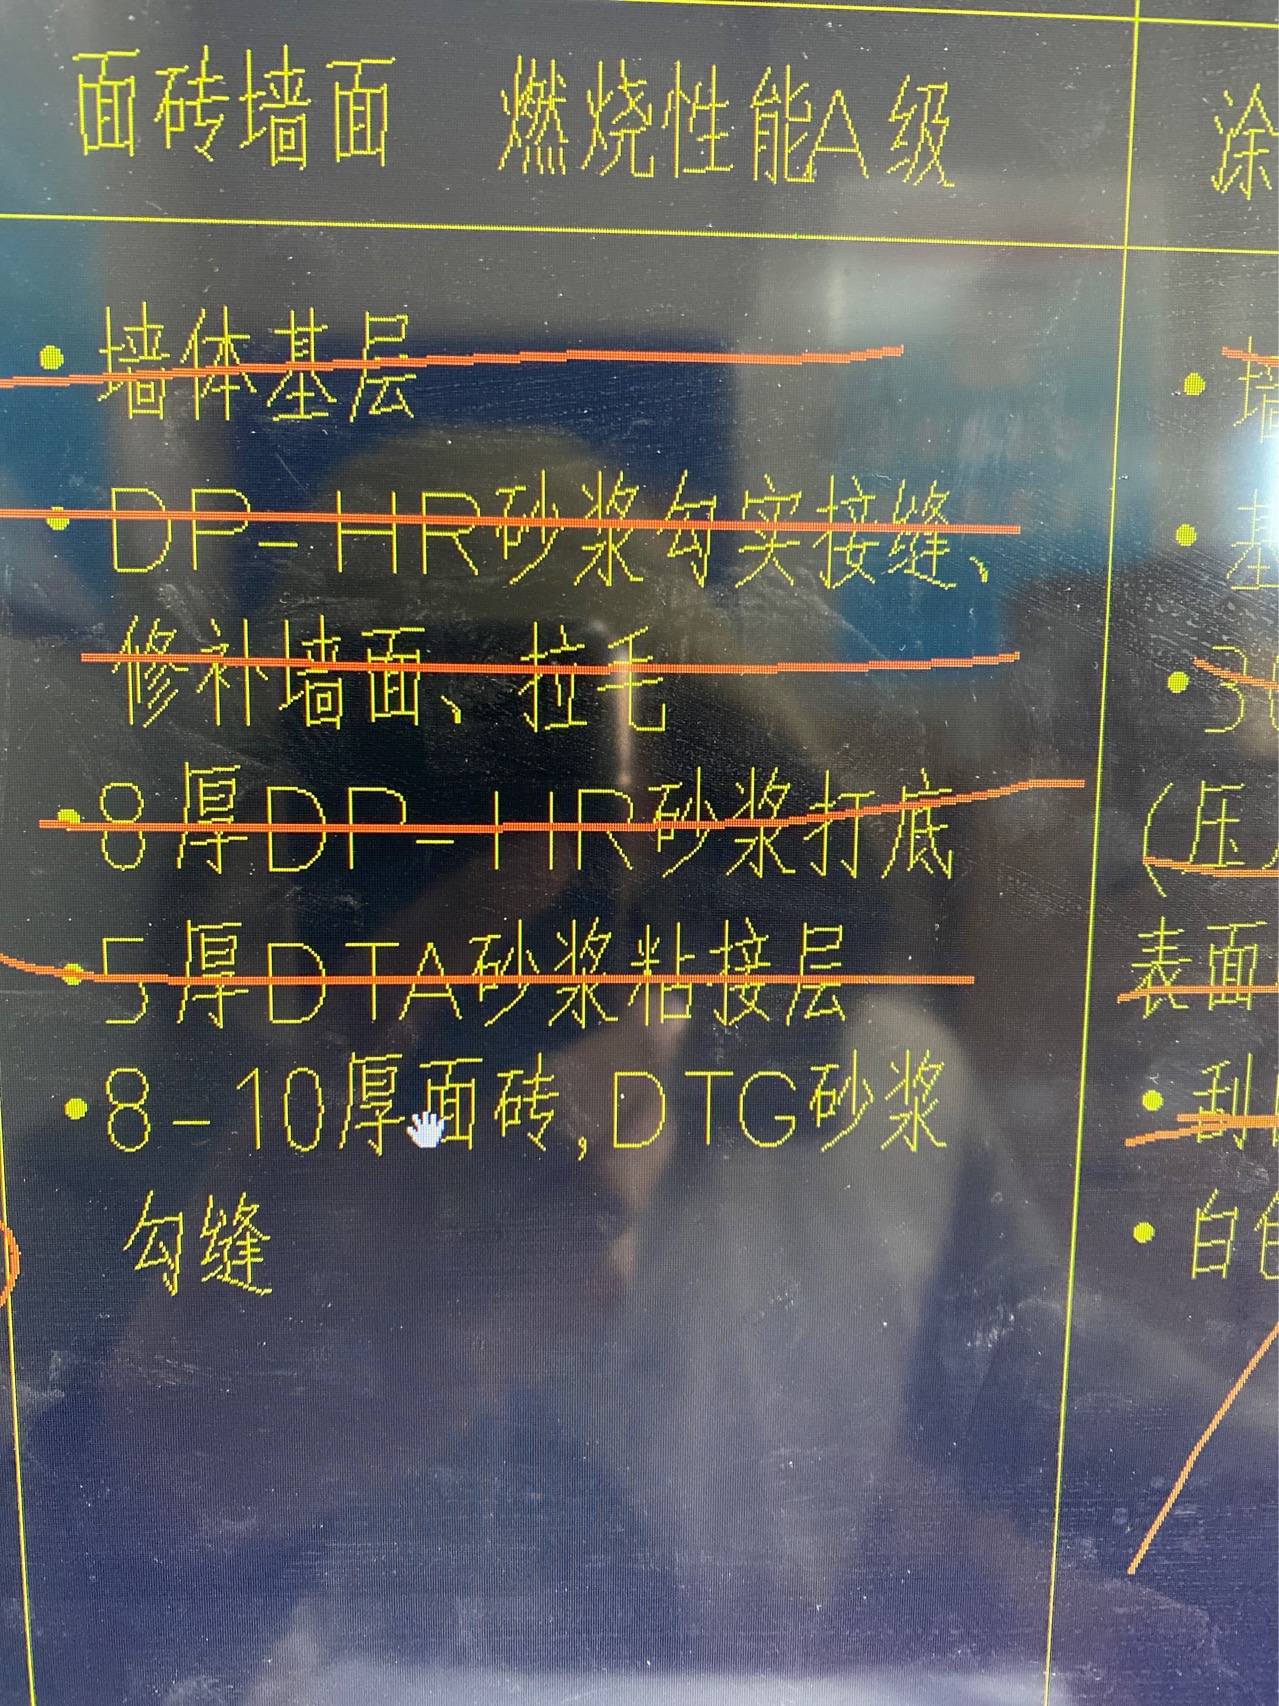 面砖墙面 燃烧性能A级
涂
• 墙体基层
• DP-HR砂浆勾实接缝、
修补墙面、拉毛
• 8厚DP-HR砂浆打底
• 5厚DTA砂浆粘接层
• 8-10厚面砖,DTG砂浆
勾缝
• 墙
• 基
• 3
(压
表面
• 刮
• 白色